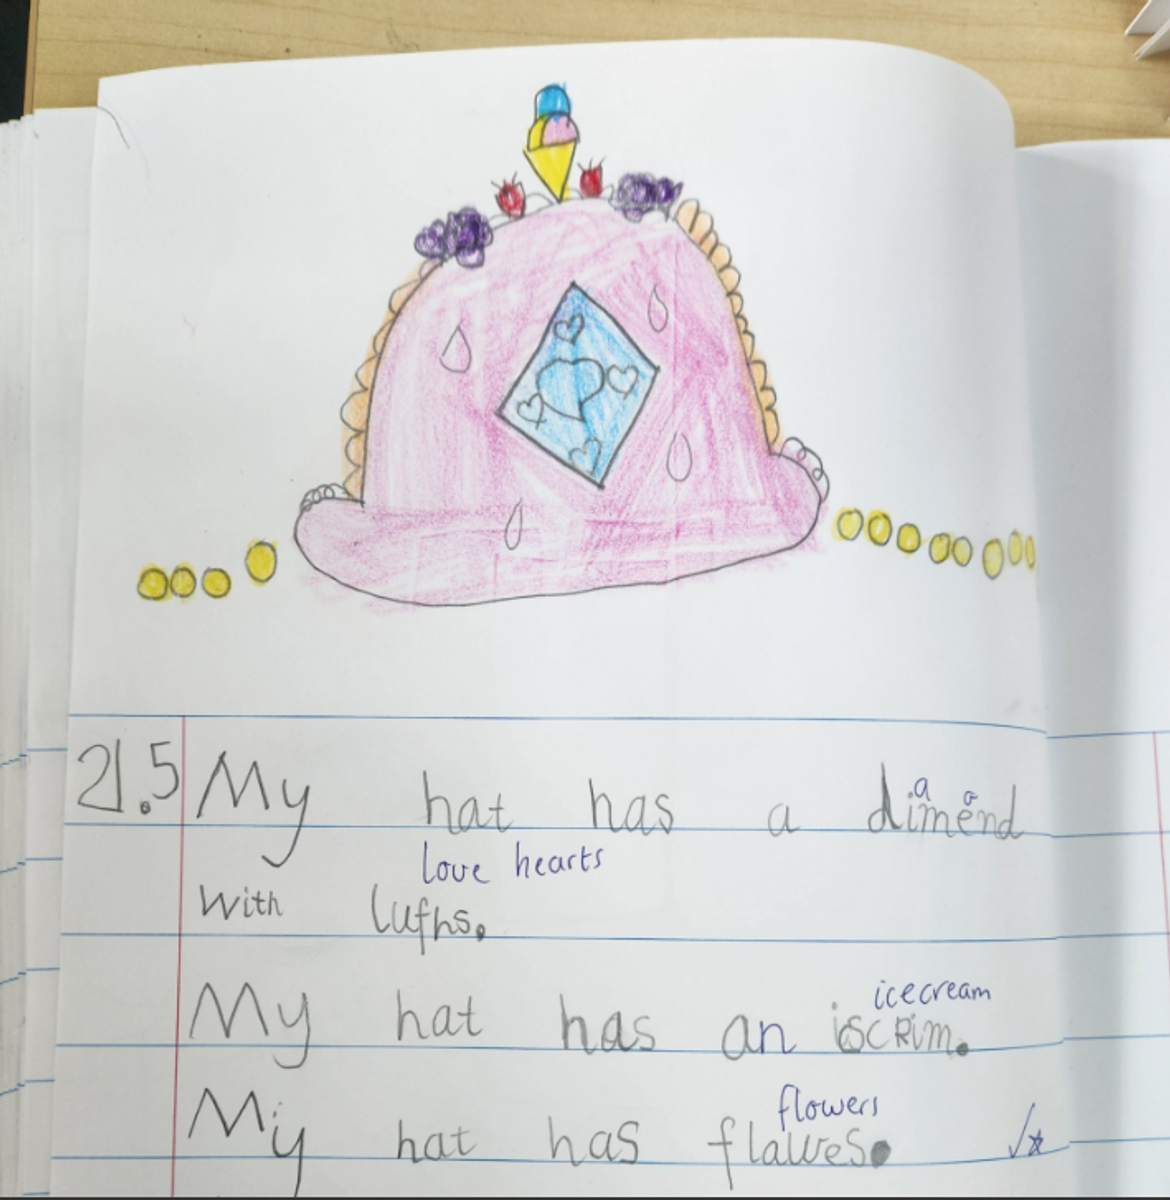 21.5 My hat has a dimend
a o
love hearts
with lufhs.
icecream
My hat has an iscrim.
flowers
My hat has flawes.